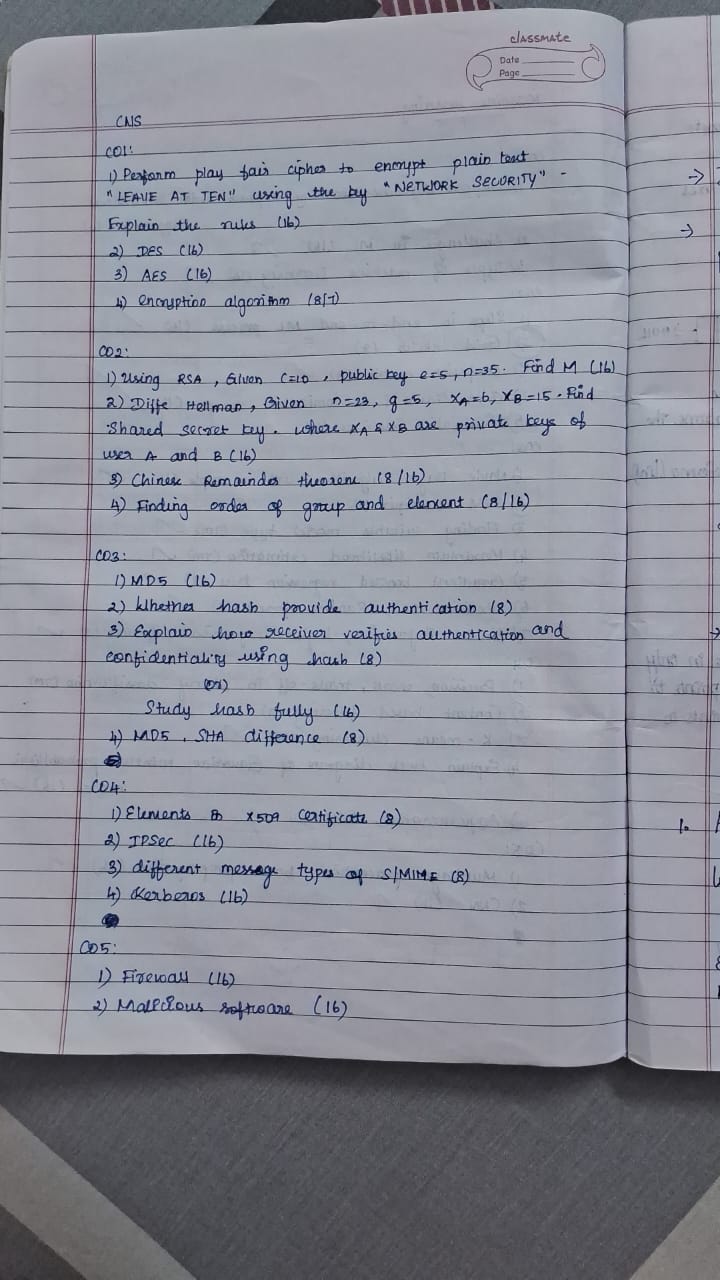 classmate
Date
Page
CNS
CO1:
1) Perform play fair cipher to encrypt plain text
"LEAVE AT TEN" using the key "NETWORK SECURITY" -
Explain the rules (16)
2) DES (16)
3) AES (16)
4) encryption algorithm
CO2:
1) Using RSA, Given C=10, public key e=5, n=35. Find M (16)
2) Diffe Hellman, Given n=23, g=5, XA=6, XB=15. Find
Shared secret key. where XA & XB are private keys of
user A and B (16)
3) Chinese Remainder theorem (8/16)
4) Finding order of group and element (8/16)
CO3:
1) MD5 (16)
2) Whether hash provide authentication (8)
3) Explain how receiver verifies authentication and
confidentiality using hash (8)
(or)
Study hash fully (16)
4) MD5, SHA difference (8)
CO4:
1) Elements X509 Certificate (8)
2) IPSec (16)
3) different message types of S/MIME (8)
4) Kerberos (16)
CO5:
1) Firewall (16)
2) Malicious software (16)